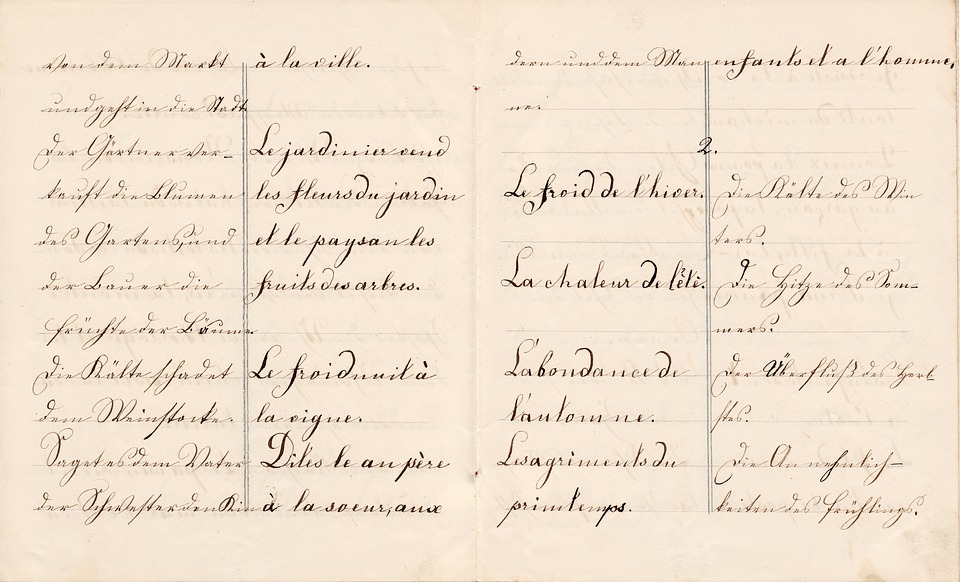 von dem Markt à la ville.
und geht in die Stadt
Der Gärtner ver-
Le jardinier vend
kauft die Blumen
les fleurs du jardin
des Gartens, und
et le paysan les
der Bauer die
fruits des arbres.
früchte der Bäume.
Die Kälte schadet
Le froid nuit à
dem Weinstocke.
la vigne.
Saget es dem Vater
Dites le au père
der Schwester den Kin
à la soeur, aux
dern und dem Man
enfants et a l'homme,
ne.
2.
Le froid de l'hiver.
Die Kälte des Win
ters.
La chaleur de l'étè.
Die Hitze des Som-
mers.
L'abondance de
Der Überfluß des Herb
l'automne.
stes.
Les agrèments du
Die Annehmlich-
printemps.
keiten des frühlings.